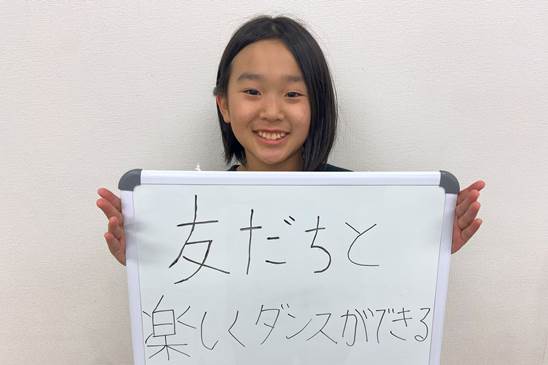 友だちと
楽しくダンスができる